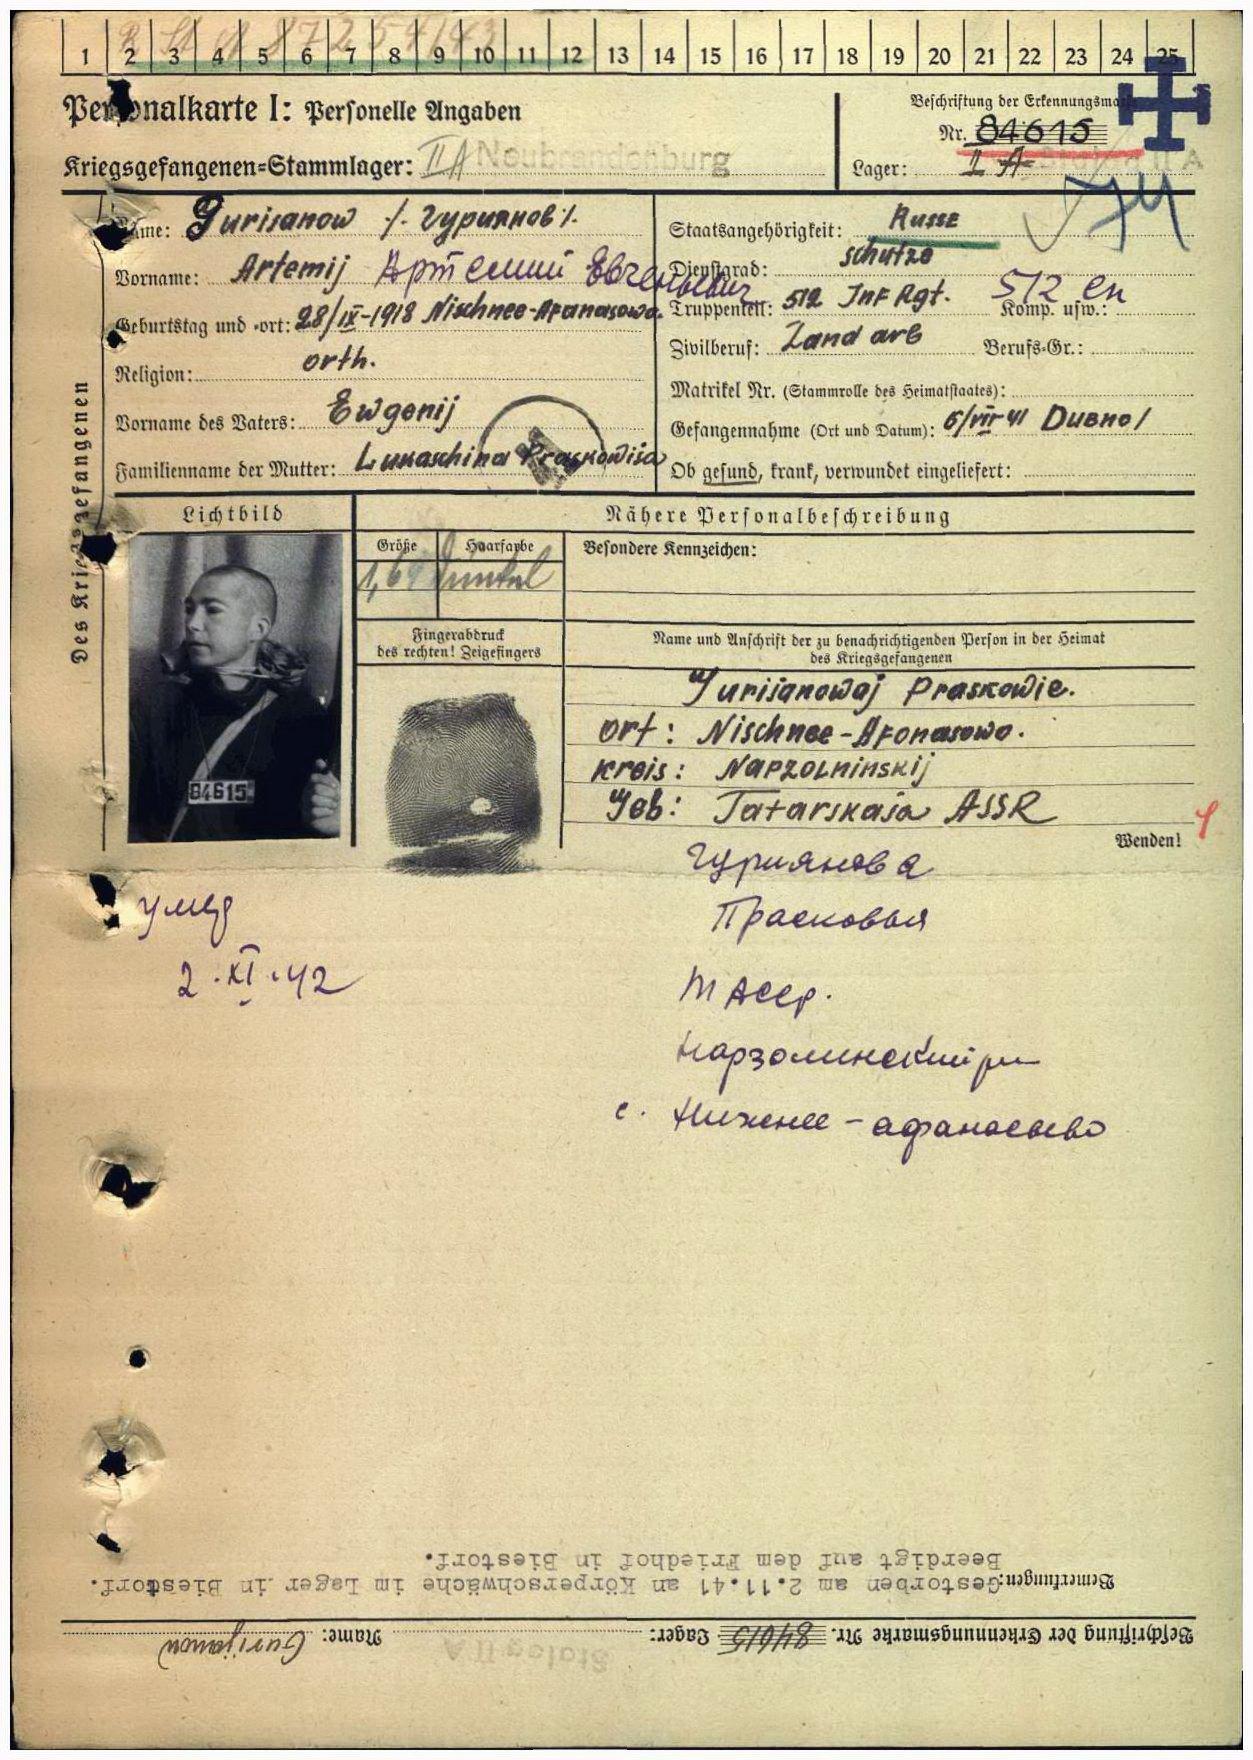 R St A 8725 4/43
1 2 3 4 5 6 7 8 9 10 11 12 13 14 15 16 17 18 19 20 21 22 23 24 25
Personalkarte I: Personelle Angaben
Kriegsgefangenen=Stammlager: II A Neubrandenburg
Beschriftung der Erkennungsmarke
Nr. 84615
Lager: II A
Des Kriegsgefangenen
Name: Gurisanow /. Гуриянов /.
Vorname: Artemij Артемий Евгеньевич
Geburtstag und =ort: 28/IX-1918 Nischnee-Afanasowo.
Religion: orth.
Vorname des Vaters: Ewgenij
Familienname der Mutter: Lukaschina Praskowija
Staatsangehörigkeit: Russe
Dienstgrad: schütze
Truppenteil: 512 Inf Rgt. Komp. usw.: 512 сп
Zivilberuf: Land arb Berufs=Gr.:
Matrikel Nr. (Stammrolle des Heimatstaates):
Gefangennahme (Ort und Datum): 6/VII 41 Dubno/
Ob gesund, krank, verwundet eingeliefert:
Lichtbild
Nähere Personalbeschreibung
Größe Haarfarbe Besondere Kennzeichen:
1,69 dunkel
84615
Fingerabdruck
des rechten! Zeigefingers
Name und Anschrift der zu benachrichtigenden Person in der Heimat
des Kriegsgefangenen
Gurijanowaj Praskowie.
Ort: Nischnee-Afonasowo.
Kreis: Narzolninskij
Geb: Tatarskaja ASSR
Wenden!
Гуриянова
Прасковья
ТАССР.
Нарзолинский рн
с. Нижнее-афанасьево
умер
2.XI.42
Beschriftung der Erkennungsmarke Nr. 84615 Lager: Stalag II A Name: Gurijanow
Bemerkungen: Gestorben am 2.11.41 an Körperschwäche im Lager in Biestorf.
Beerdigt auf dem Friedhof in Biestorf.